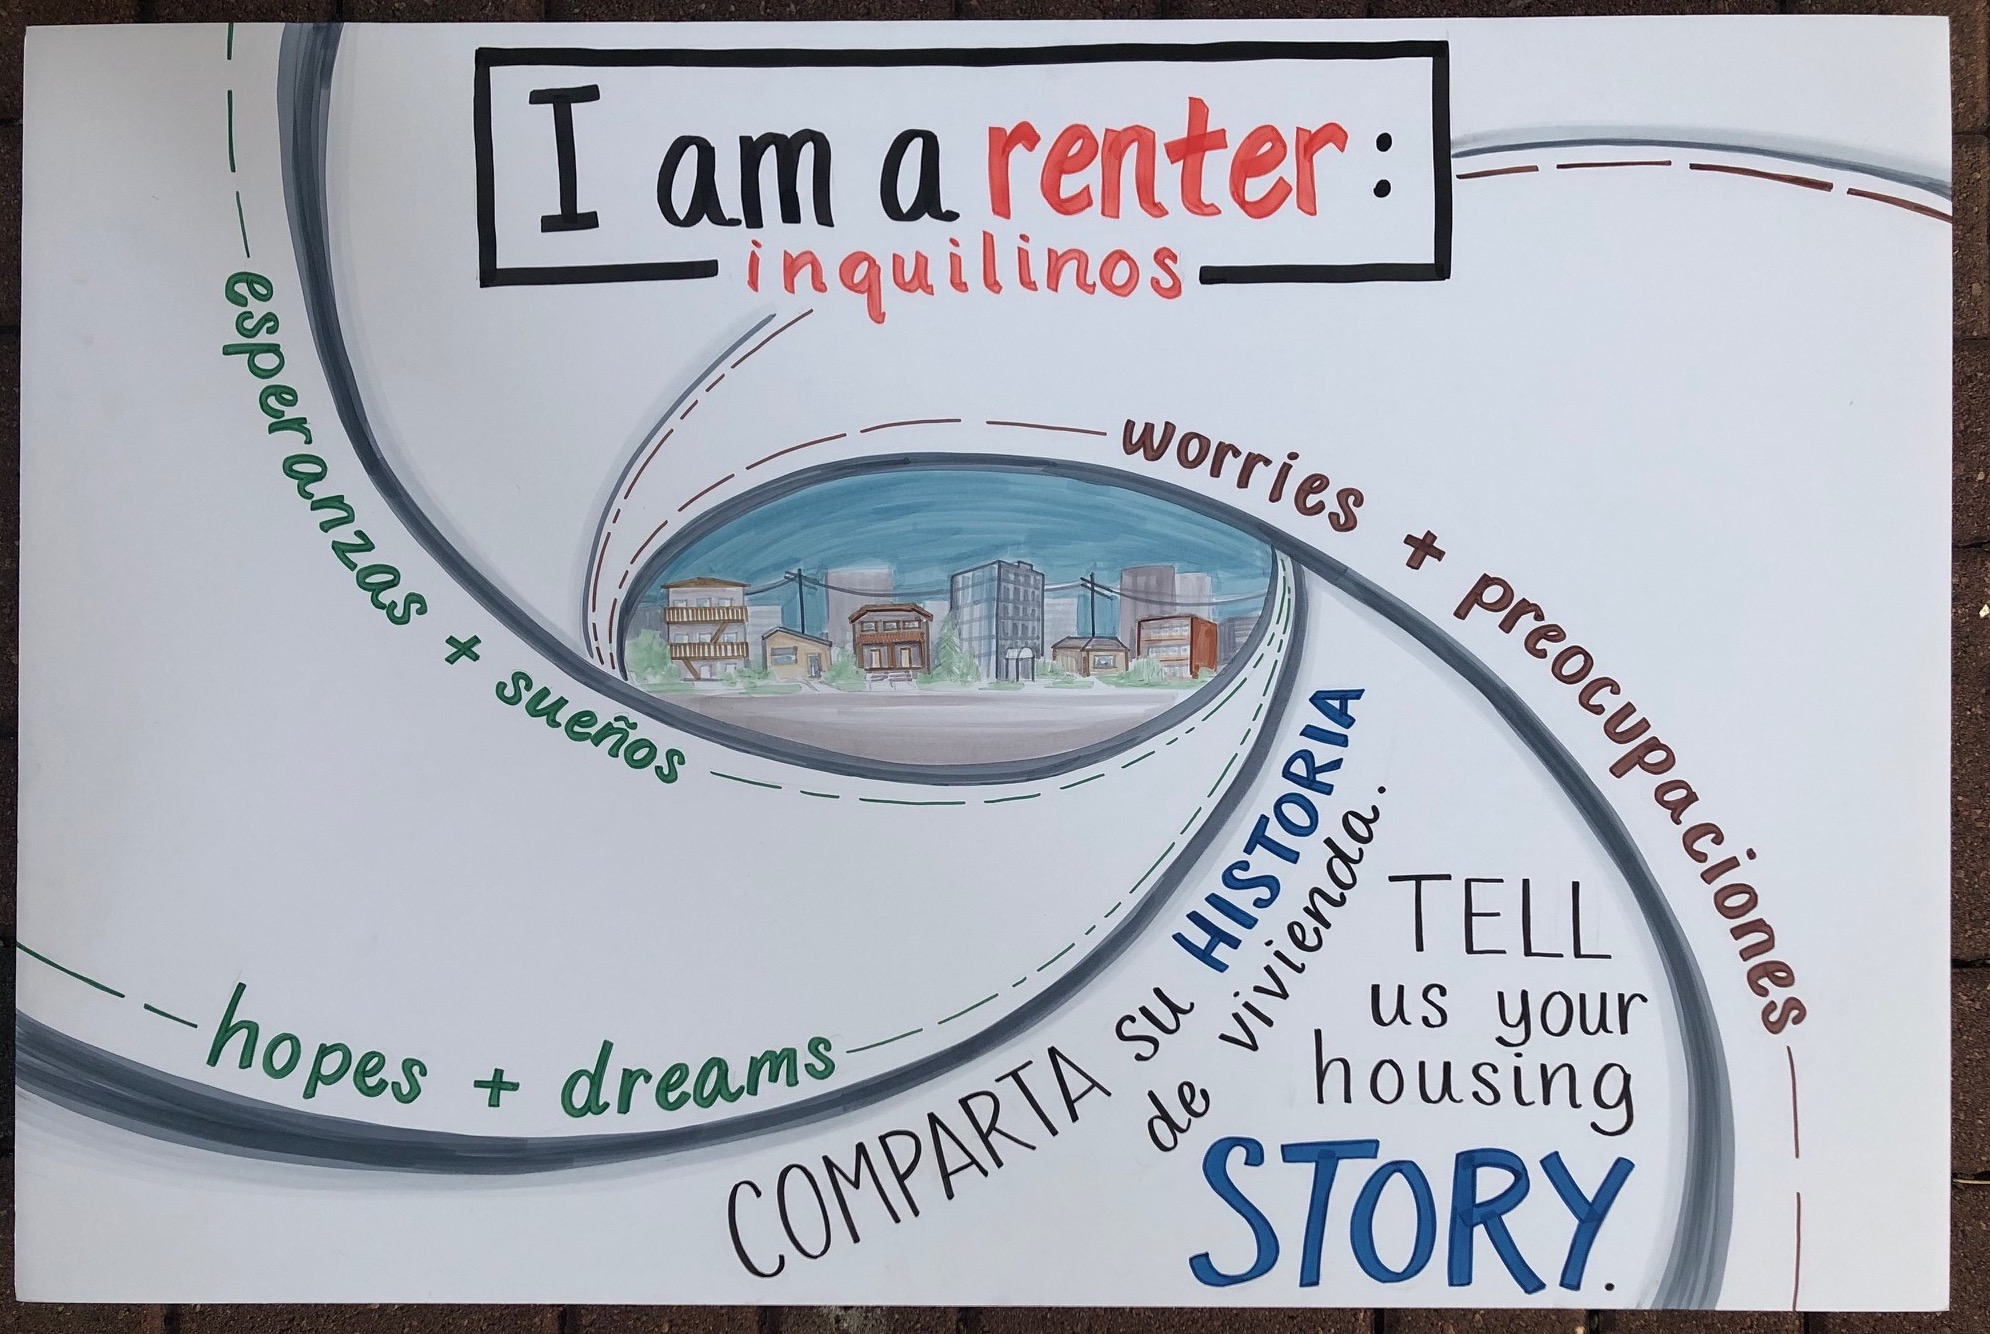 I am a renter:
inquilinos
esperanzas + sueños
worries + preocupaciones
hopes + dreams
COMPARTA su HISTORIA
de vivienda.
TELL
us your
housing
STORY.